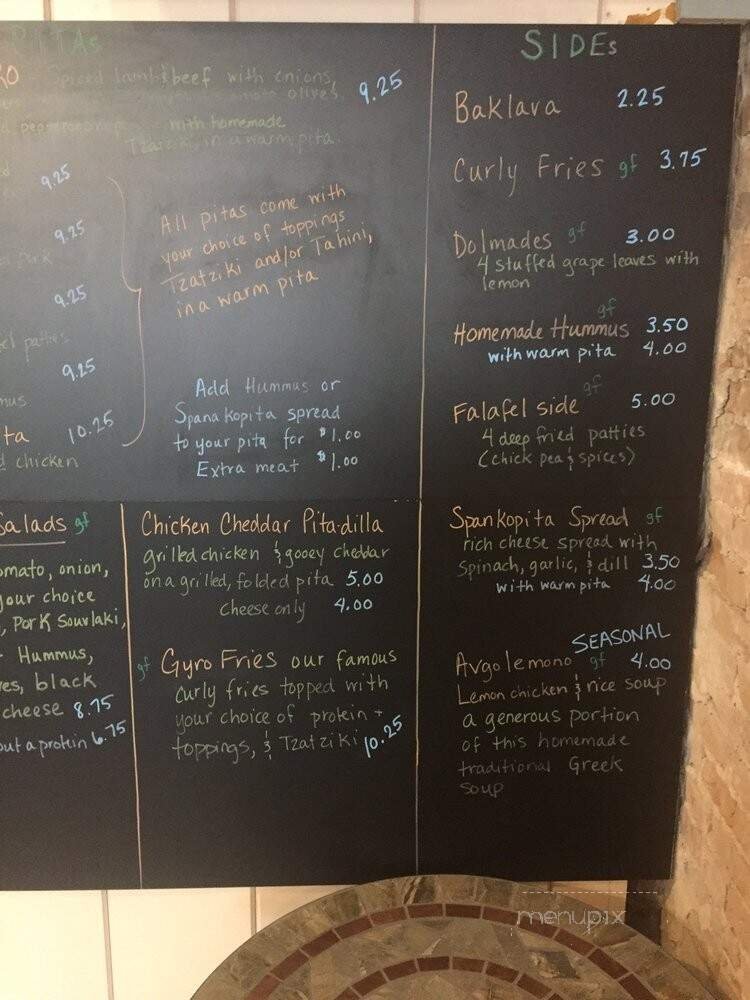 PITAs
Spiced lamb & beef with onions,
olives. 9.25
with homemade
Tzatziki, in a warm pita.
9.25
9.25
pork
9.25
patties
9.25
mus
ta 10.25
chicken
All pitas come with
your choice of toppings
Tzatziki and/or Tahini,
in a warm pita
Add Hummus or
Spanakopita spread
to your pita for $1.00
Extra meat $1.00
SIDEs
Baklava 2.25
Curly Fries gf 3.75
Dolmades gf 3.00
4 stuffed grape leaves with
lemon
gf
Homemade Hummus 3.50
with warm pita 4.00
gf
Falafel side 5.00
4 deep fried patties
(chick pea & spices)
Salads gf
omato, onion,
your choice
, Pork Souvlaki,
Hummus,
es, black
cheese 8.75
out a protein 6.75
Chicken Cheddar Pita-dilla
grilled chicken & gooey cheddar
on a grilled, folded pita 5.00
cheese only 4.00
gf Gyro Fries our famous
curly fries topped with
your choice of protein +
toppings, & Tzatziki 10.25
Spankopita Spread gf
rich cheese spread with
spinach, garlic, & dill 3.50
with warm pita 4.00
SEASONAL
Avgolemono gf 4.00
Lemon chicken & rice soup
a generous portion
of this homemade
traditional Greek
soup
menupix